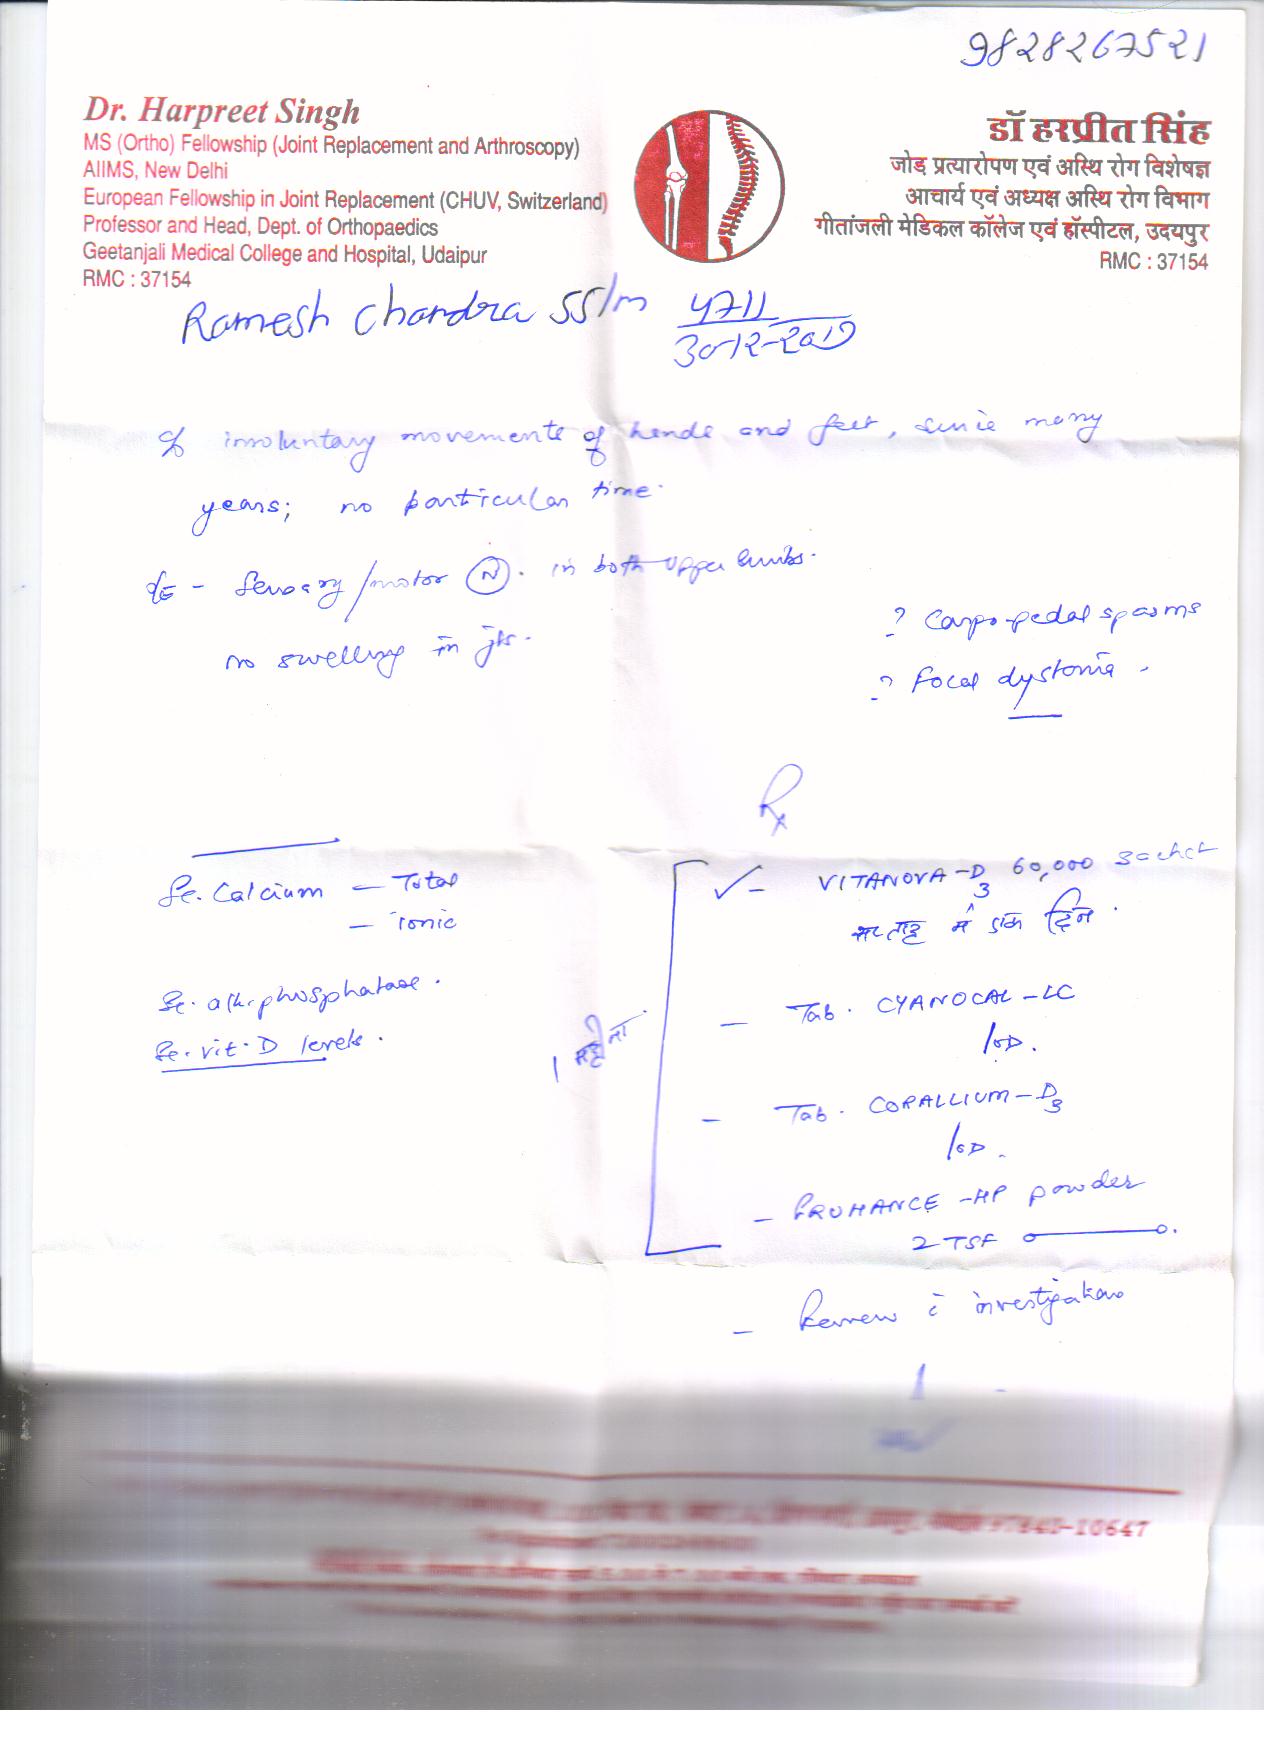 9828267521
Dr. Harpreet Singh
MS (Ortho) Fellowship (Joint Replacement and Arthroscopy)
AIIMS, New Delhi
European Fellowship in Joint Replacement (CHUV, Switzerland)
Professor and Head, Dept. of Orthopaedics
Geetanjali Medical College and Hospital, Udaipur
RMC : 37154
डॉ हरप्रीत सिंह
जोड़ प्रत्यारोपण एवं अस्थि रोग विशेषज्ञ
आचार्य एवं अध्यक्ष अस्थि रोग विभाग
गीतांजली मेडिकल कॉलेज एवं हॉस्पीटल, उदयपुर
RMC : 37154
Ramesh Chandra 55/m
4711
30-12-2019
c/o involuntary movements of hands and feet, since many
years; no particular time.
o/E - Sensory/motor (N). in both upper limbs.
no swelling in jts.
? Carpo-pedal spasms
? Focal dystonia.
Se. Calcium - Total
- ionic
Se. alk. phosphatase.
Se. vit. D levels.
Rx
✓- VITANOVA-D3 60,000 sachet
सप्ताह में एक दिन.
- Tab. CYANOCAL-LC
1 OD.
- Tab. CORALLIUM-D3
1 OD.
- PROHANCE-HP powder
2 TSF o———o.
1 महीना
- Review c̄ investigations
97843-10647